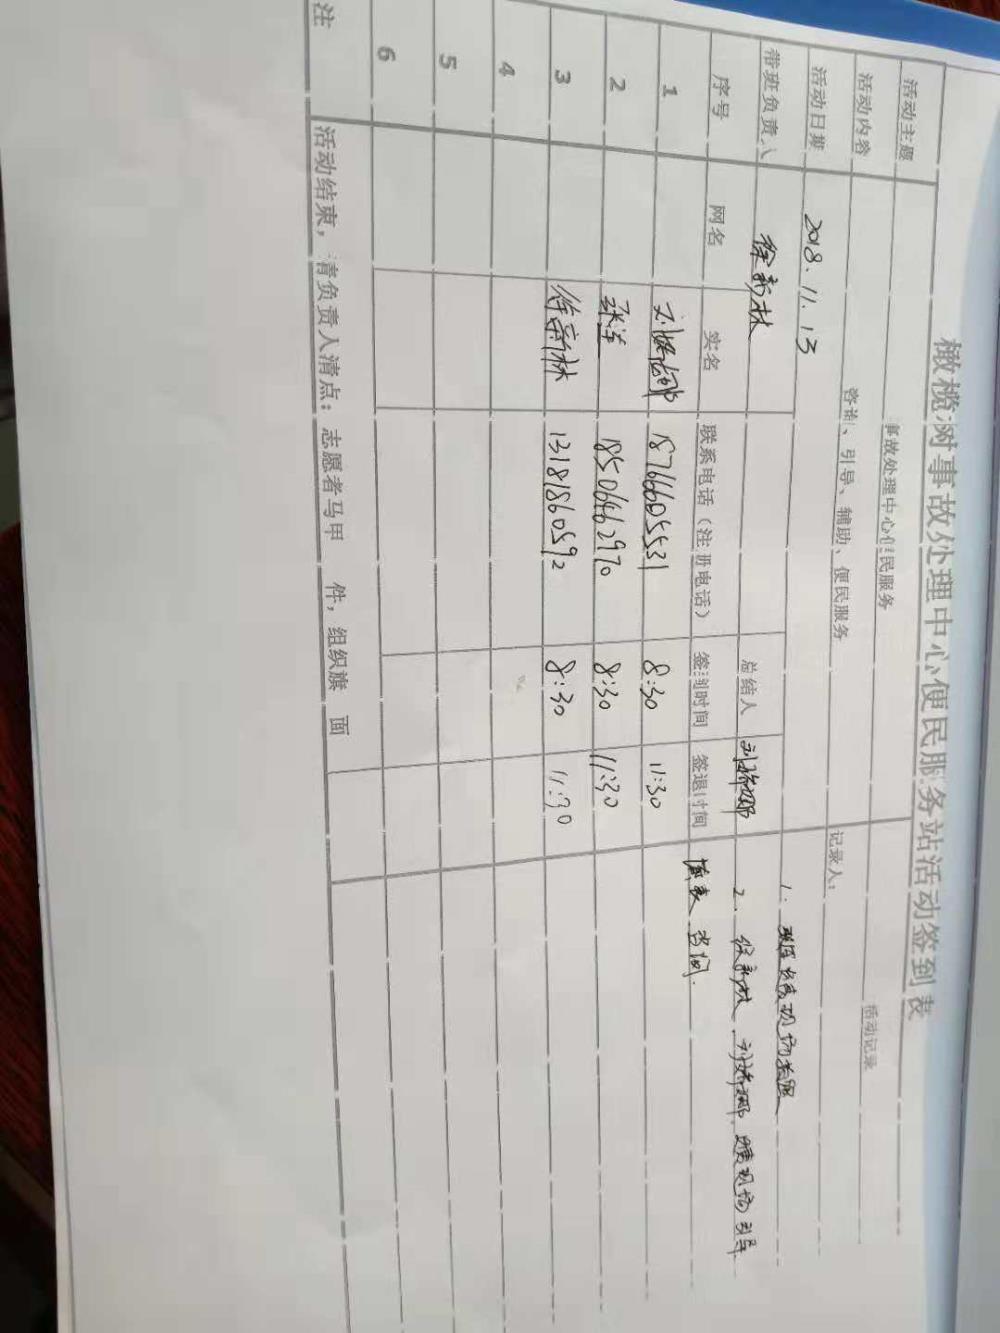 橄榄树事故处理中心便民服务站活动签到表
活动主题 事故处理中心便民服务 活动记录
活动内容 咨询、引导、辅助、便民服务 记录人:
活动日期 2018.11.13
带班负责人 徐新林 总结人
序号 网名 实名 联系电话(注册电话) 签到时间 签退时间
1 18766605531 8:30 11:30
2 张洋 18506462970 8:30 11:30
3 徐新林 13181860592 8:30 11:30
4
5
6
注 活动结束,请负责人清点:志愿者马甲 件,组织旗 面
1. 负责现场拍照
2. 徐新林、 负责现场引导
填表 咨询.